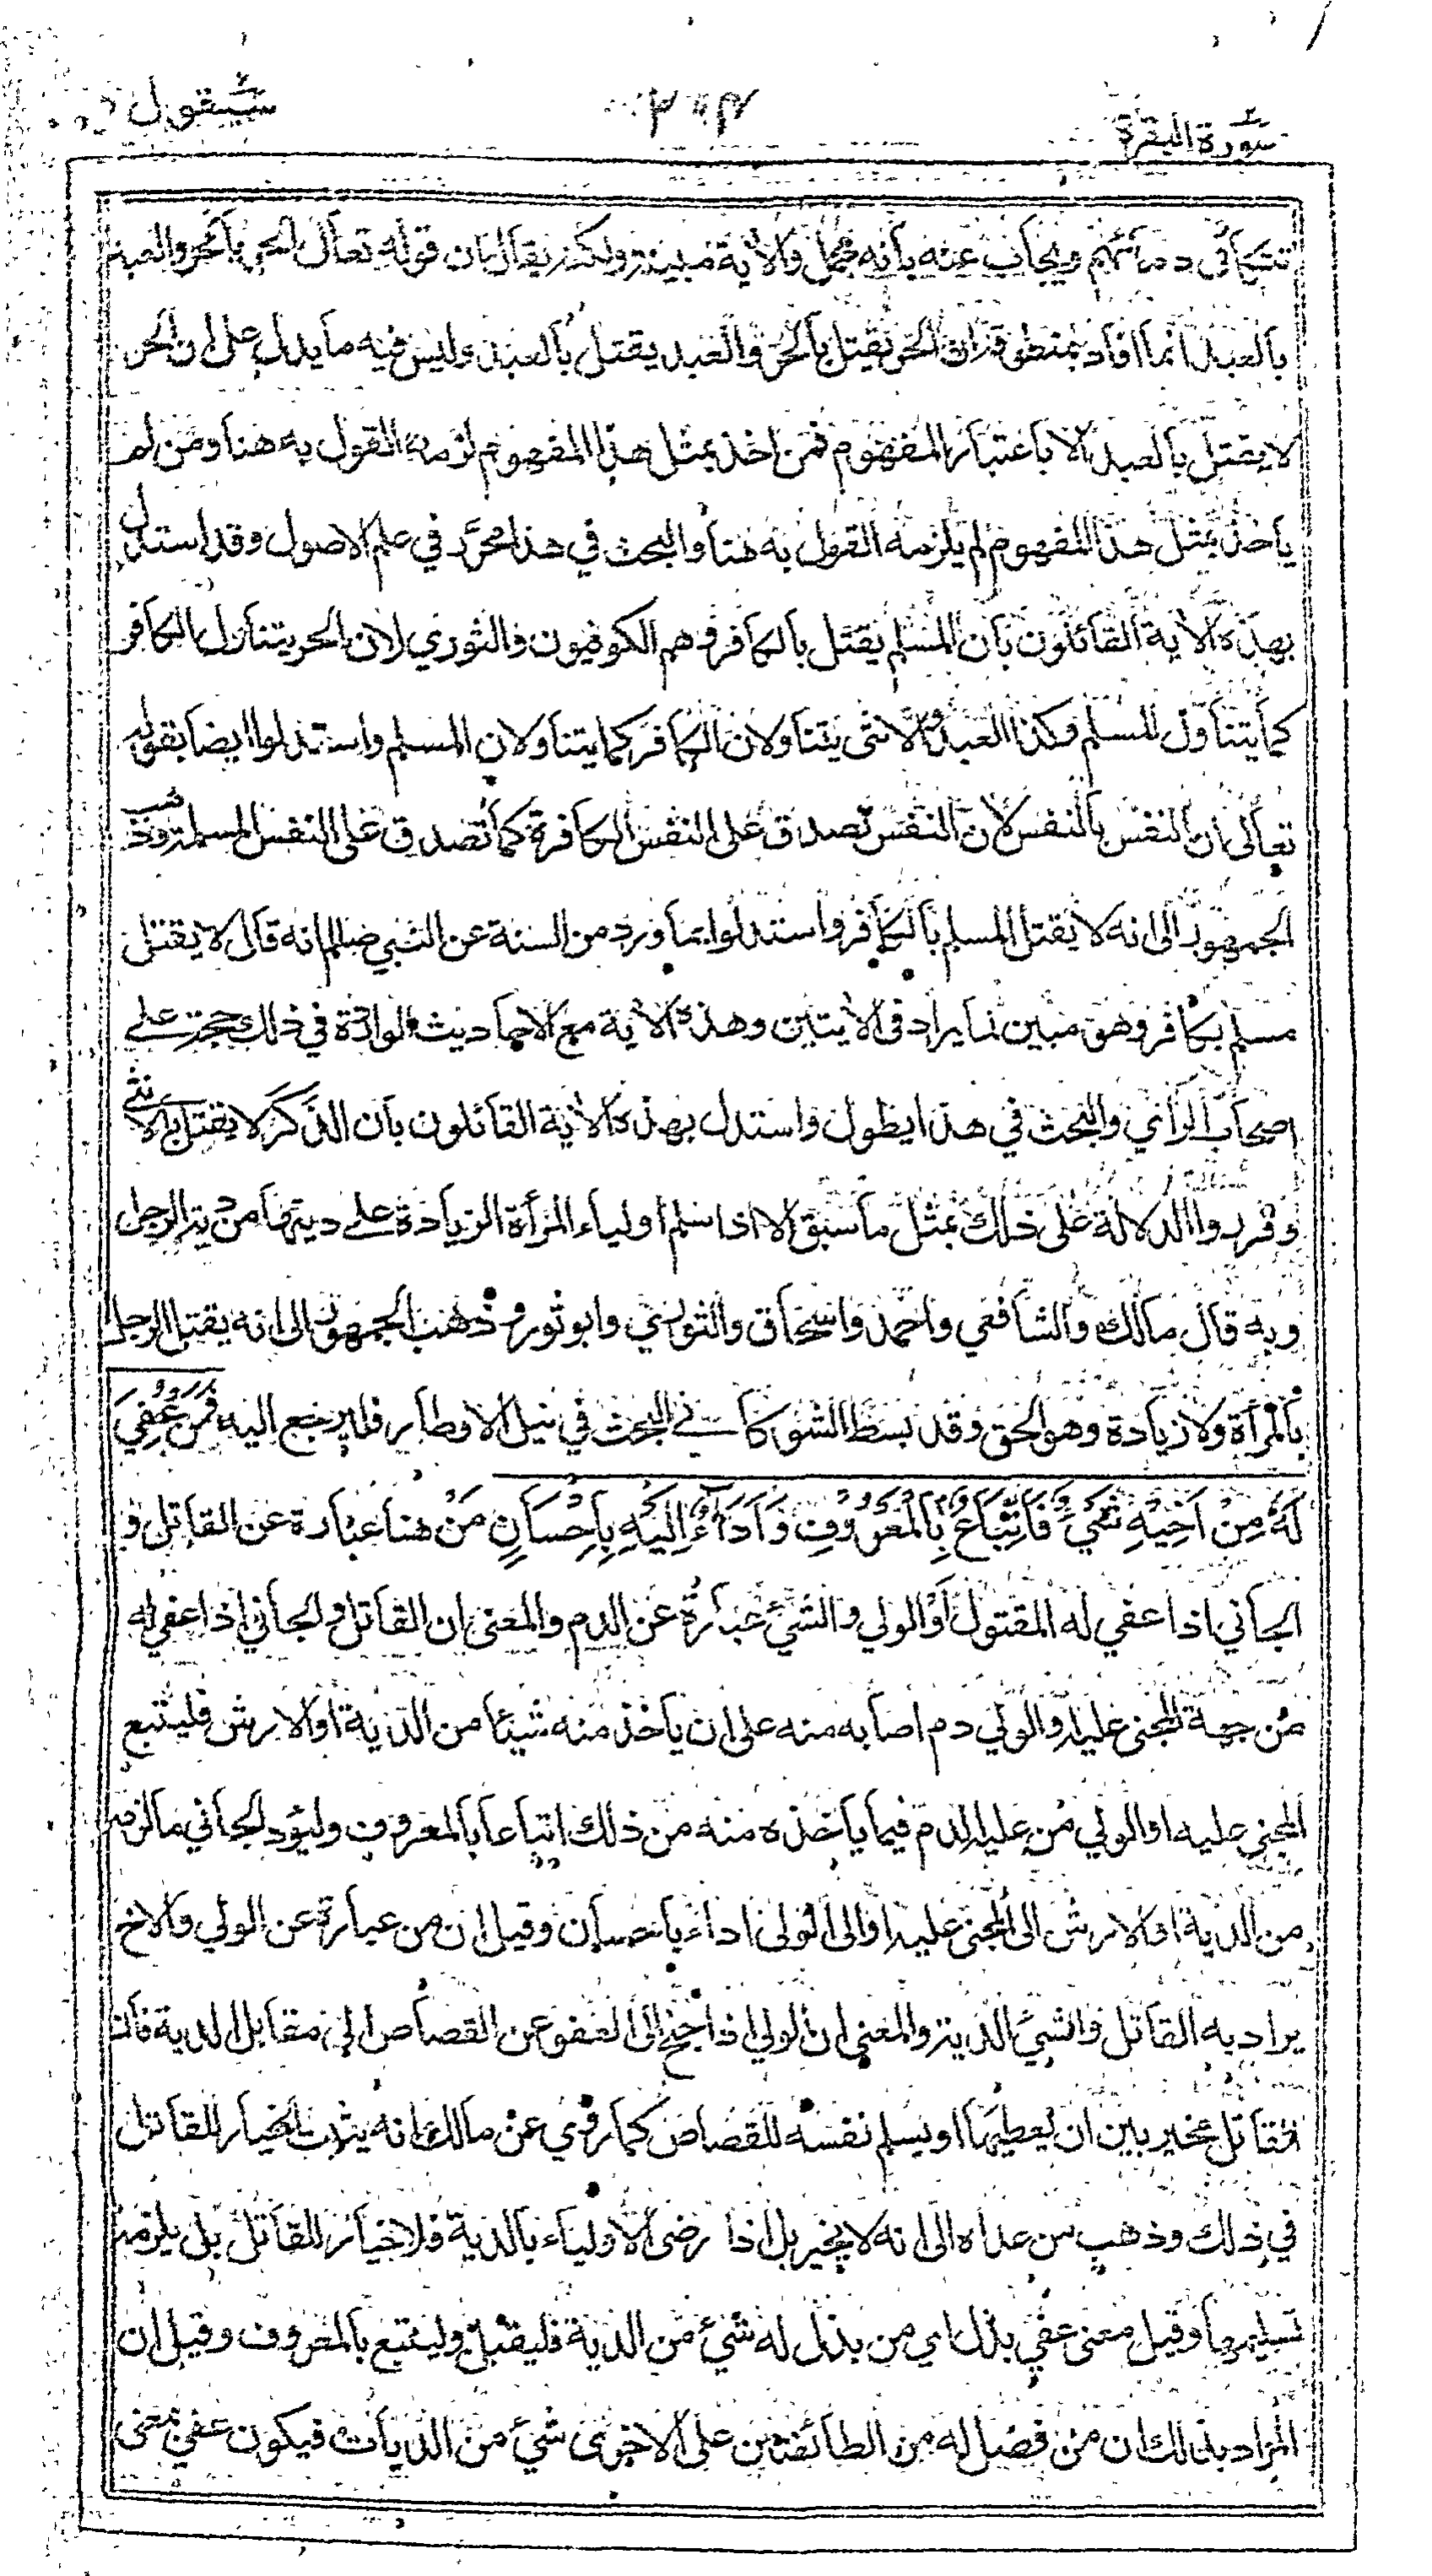 سورة البقرة
سيقول
تتكافى دماءهم ويجاب عنه بأنه مجمل والآية مبينة ولكنه يقال ان قوله تعالى الحر بالحر والعبد
بالعبد انما افاد بمنطوقه ان الحر يقتل بالحر والعبد يقتل بالعبد وليس فيه ما يدل على ان الحر
لا يقتل بالعبد الا باعتبار المفهوم فمن اخذ بمثل هذا المفهوم لزمه القول به هنا ومن لم
ياخذ بمثل هذا المفهوم لم يلزمه القول به هنا والبحث في هذا محرر في علم الاصول وقد استدل
بهذه الآية القائلون بان المسلم يقتل بالكافر وهم الكوفيون والثوري لان الحر يتناول الكافر
كما يتناول المسلم وكذا العبد والانثى يتناولان الكافر كما يتناولان المسلم واستدلوا ايضا بقوله
تعالى ان النفس بالنفس لان النفس تصدق على النفس الكافرة كما تصدق على النفس المسلمة وذهب
الجمهور الى انه لا يقتل المسلم بالكافر واستدلوا بما ورد من السنة عن النبي صللم انه قال لا يقتل
مسلم بكافر وهو مبين لما يراد في الآيتين وهذه الآية مع الاحاديث الواردة في ذلك حجة على
اصحاب الرأي والبحث في هذا يطول واستدل بهذه الآية القائلون بان الذكر لا يقتل بالانثى
وقرروا الدلالة على ذلك بمثل ما سبق الا اذا سلم اولياء المرأة الزيادة على ديتها من دية الرجل
وبه قال مالك والشافعي واحمد واسحاق والثوري وابو ثور وذهب الجمهور الى انه يقتل الرجل
بالمرأة ولا زيادة وهو الحق وقد بسط الشوكاني البحث في نيل الاوطار فليرجع اليه فَمَنْ عُفِيَ
لَهُ مِنْ اَخِيْهِ شَيْءٌ فَاتِّبَاعٌ بِالْمَعْرُوْفِ وَاَدَاءٌ اِلَيْهِ بِاِحْسَانٍ مَنْ هنا عبارة عن القاتل و
الجاني اذا عفي له المقتول او الولي والشيء عبارة عن الدم والمعنى ان القاتل والجاني اذا عفي له
من جهة المجنى عليه او الولي دم اصابه منه على ان ياخذ منه شيئا من الدية او الارش فليتبع
المجني عليه او الولي من عليه الدم فيما ياخذه منه من ذلك اتباعا بالمعروف وليؤد الجاني ما لزمه
من الدية او الارش الى المجنى عليه او الى الولى اداء باحسان وقيل ان من عبارة عن الولي والاخ
يراد به القاتل والشيء الدية والمعنى ان الولي اذا جنح الى العفو عن القصاص الى مقابل الدية فان
القاتل مخير بين ان يعطيها او يسلم نفسه للقصاص كما روي عن مالك انه يثبت الخيار للقاتل
في ذلك وذهب من عداه الى انه لا يخير بل اذا رضى الاولياء بالدية فلا خيار للقاتل بل يلزمه
تسليمها وقيل معنى عفي بذل اي من بذل له شيء من الدية فليقبل وليتبع بالمعروف وقيل ان
المراد بذلك ان من فضل له من الطائفتين على الاخرى شيء من الديات فيكون عفي بمعنى